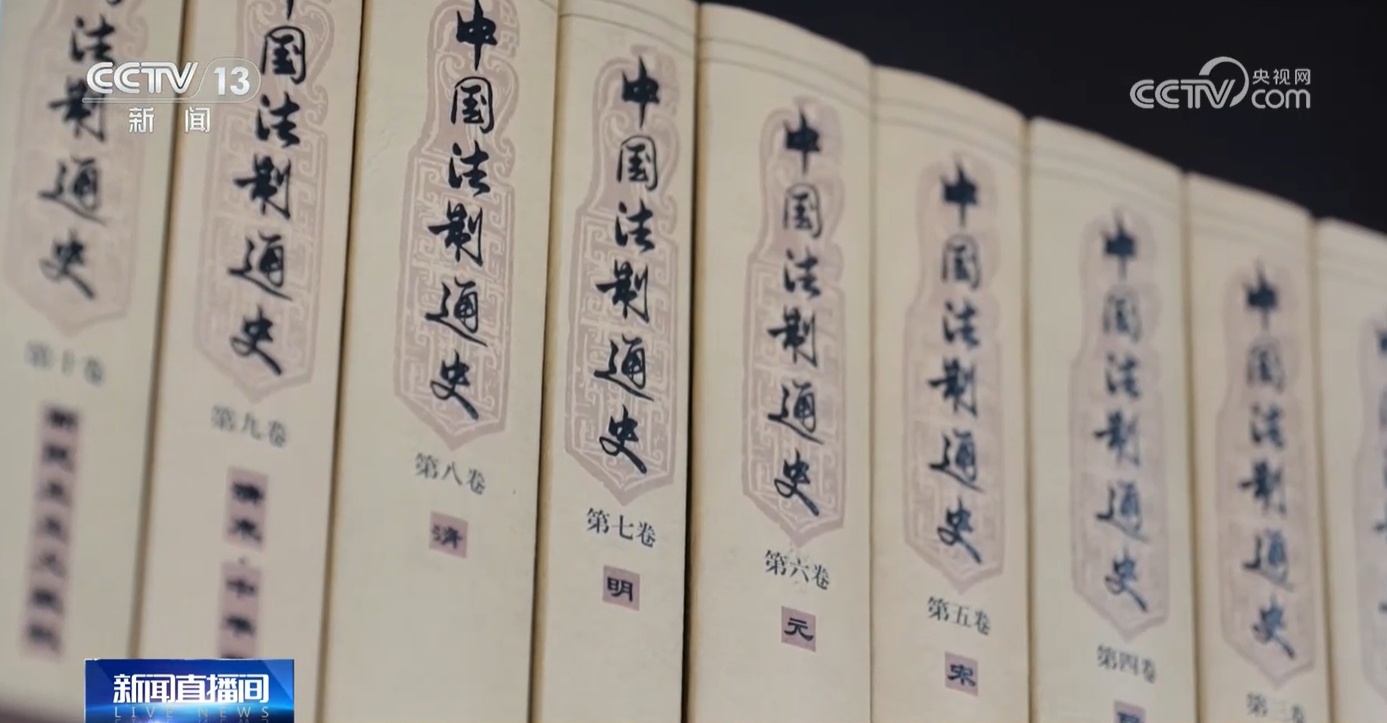 CCTV 13
新闻
CCTV 央视网
com
法制通史
第十卷
中国法制通史
第九卷
中国法制通史
第八卷
清
中国法制通史
第七卷
明
中国法制通史
第六卷
元
中国法制通史
第五卷
宋
中国法制通史
第四卷
中国法制通史
第三卷
新闻直播间
LIVE NEWS